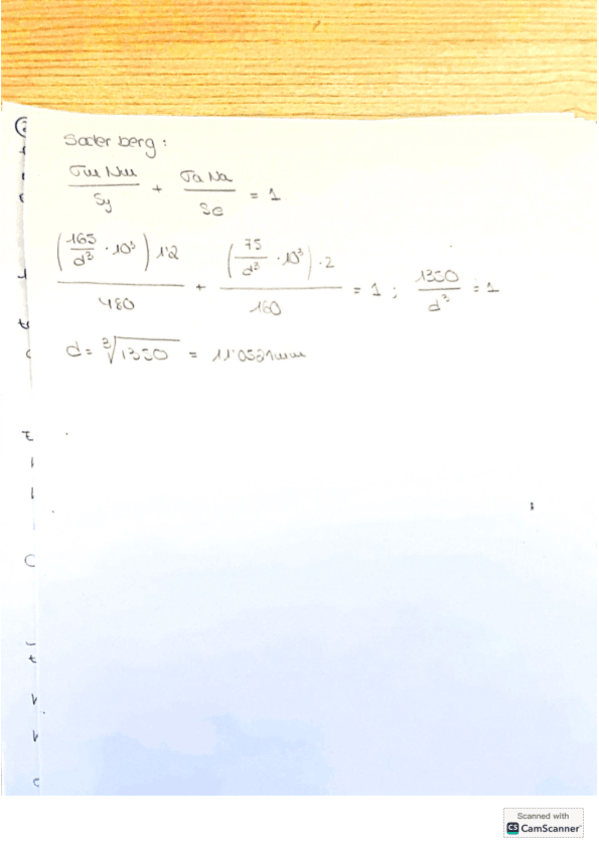 Soderberg:
σm Nm / Sy + σa Na / Se = 1
(165/d³ · 10³) 1'2 / 480 + (75/d³ · 10³) · 2 / 160 = 1 ; 1350/d³ = 1
d = ³√1350 = 11'0521mm
Scanned with
CS CamScanner